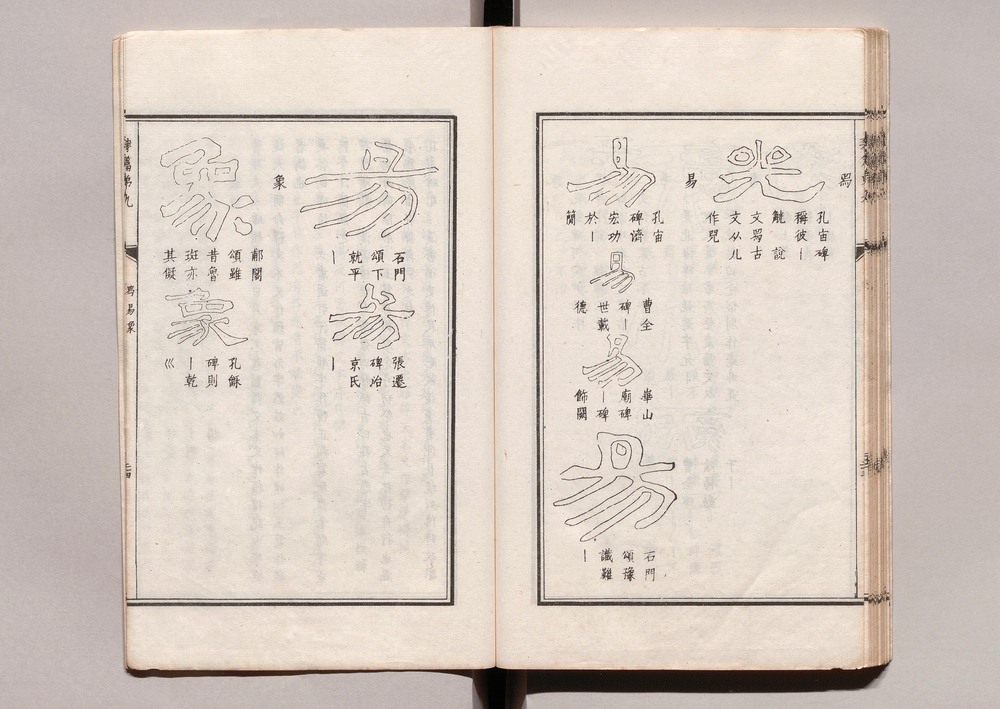 𤉡
兕
孔宙碑
稱彼丨
觥 說
文𤉡古
文从儿
作兕
易
易
孔宙
碑濟
宏功
於丨
簡
易
曹全
碑丨
世載
德
易
華山
廟碑
丨碑
飾闕
易
石門
頌豫
識難
丨
易
石門
頌下
就平
丨
易
張遷
碑治
京氏
丨
象
象
鄐閣
頌雖
昔魯
斑亦
其儗
象
孔龢
碑則
丨乾
巛
易象